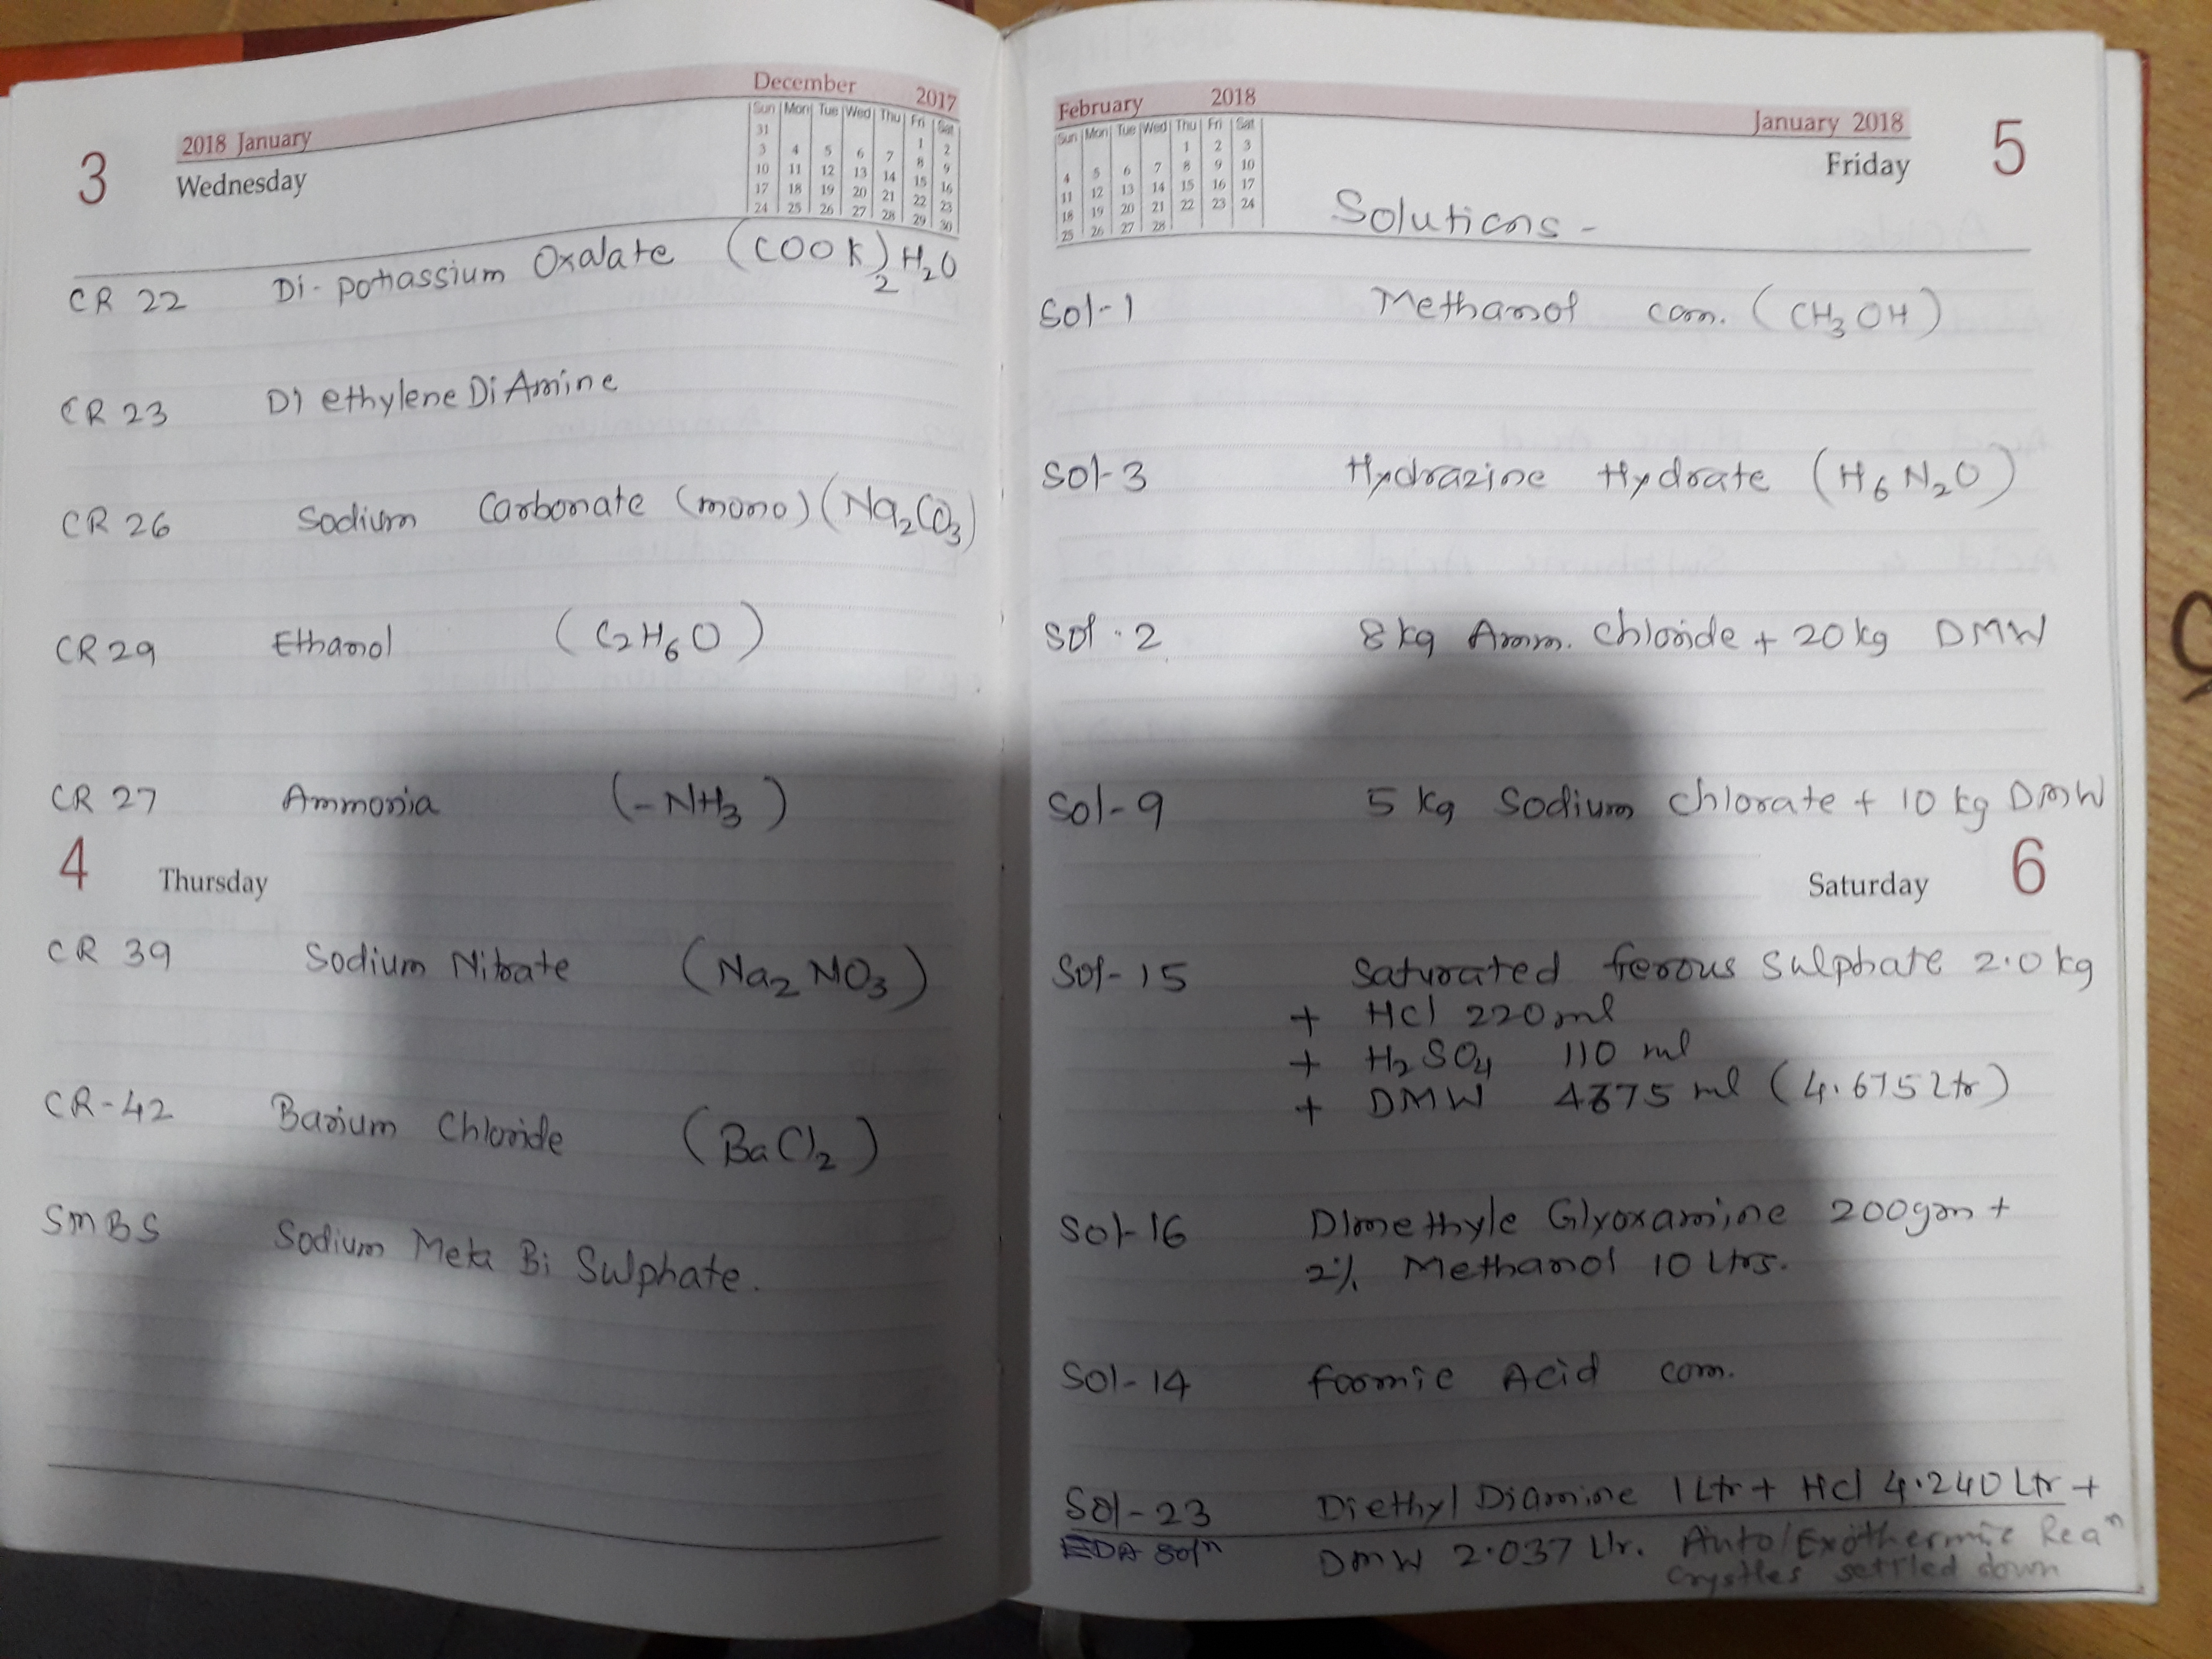 2018 January
December 2017
3 Wednesday
Sun Mon Tue Wed Thu Fri Sat
31 1 2
3 4 5 6 7 8 9
10 11 12 13 14 15 16
17 18 19 20 21 22 23
24 25 26 27 28 29 30
CR 22 Di-pottassium Oxalate (COOK)2 H2O
CR 23 DiethyleneDiAmine
CR 26 Sodium Carbonate (mono) (Na2CO3)
CR 29 Ethanol (C2H6O)
CR 27 Ammonia (-NH3)
4 Thursday
CR 39 Sodium Nitrate (Na2NO3)
CR-42 Barium Chloride (BaCl2)
SMBS Sodium Meta Bi Sulphate.
February 2018
January 2018
Friday 5
Sun Mon Tue Wed Thu Fri Sat
1 2 3
4 5 6 7 8 9 10
11 12 13 14 15 16 17
18 19 20 21 22 23 24
25 26 27 28
Solutions -
Sol-1 Methanol com. (CH3OH)
Sol-3 Hydrazine Hydrate (H6N2O)
Sol-2 8kg Amm. Chloride + 20kg DMW
Sol-9 5kg Sodium Chlorate + 10kg DMW
Saturday 6
Sol-15 Saturated ferrous Sulphate 2.0kg
+ Hcl 220ml
+ H2SO4 110 ml
+ DMW 4675 ml (4.675Ltr)
Sol-16 Dimethyle Glyoxamine 200gm +
2% Methanol 10 Ltrs.
Sol-14 formic Acid com.
Sol-23 Diethyl Diamine 1Ltr + Hcl 4.240Ltr +
EDA Soln DMW 2.037Ltr. Auto/Exothermic Rean
Crystles settled down